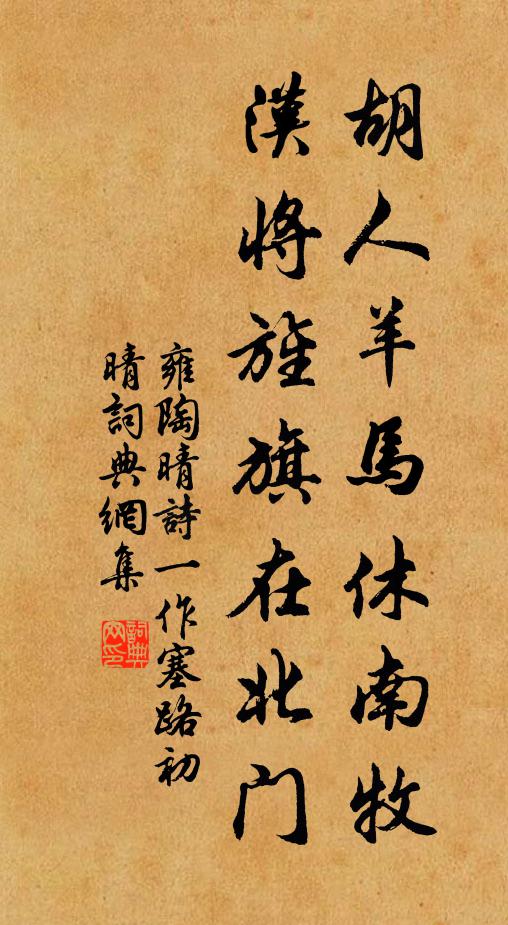 胡人羊馬休南牧
漢將旌旗在北門
雍陶晴詩一作塞路初
晴詞典網集
詞典
网印